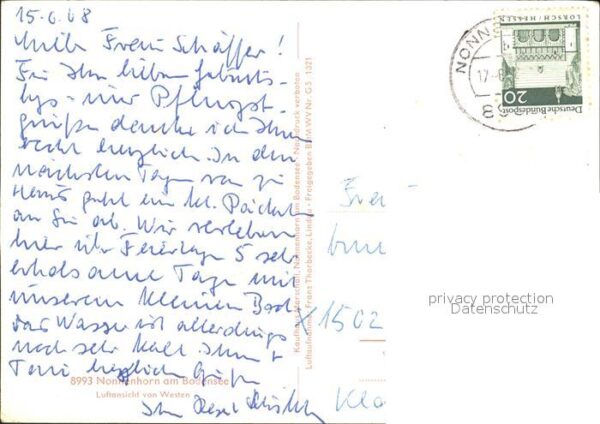 15.6.68
Liebe Frau Schäffer!
Für Ihre lieben Geburts-
tags- und Pfingst-
grüße danke ich Ihnen
recht herzlich. In den
nächsten Tagen von zu
Haus geht ein kl. Päckchen
an Sie ab. Wir verleben
hier über Feiertage 5 sehr
erholsame Tage mit
unserem kleinen
das Wasser ist allerdings
noch sehr kalt. Ihnen +
herzliche Grüße
Ihre
8993 Nonnenhorn am Bodensee
Luftansicht von Westen
Kaufhaus Nonnenhorn am Bodensee - Nachdruck verboten
Luftaufnahme: Franz Thorbecke, Lindau - Freigegeben BStMWV Nr. G 5/1321
NONN
17.-6
899
LORSCH/HESSEN
Deutsche Bundespost
20
Frau
X1502
privacy protection
Datenschutz